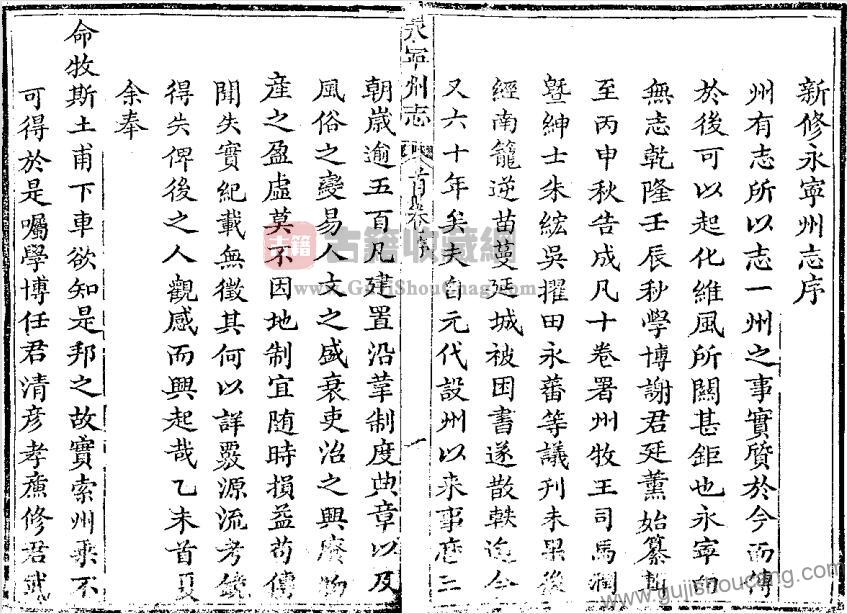 新修永寧州志序
州有志所以志一州之事實質於今而傳
於後可以起化維風所關甚鉅也永寧向
無志乾隆壬辰秋學博謝君廷薰始纂輯
至丙申秋告成凡十卷署州牧王司馬潤
暨紳士朱紘吳擢田永蕃等議刊未果後
經南籠逆苗蔓延城被困書遂散軼迄今
又六十年矣夫自元代設州以來事歷三
永寧州志 首卷序 一
朝歲逾五百凡建置沿革制度典章以及
風俗之變易人文之盛衰吏治之興廢物
產之盈虛莫不因地制宜随時損益苟傳
聞失實紀載無徵其何以詳覈源流考鏡
得失俾後之人觀感而興起哉乙未首夏
余奉
命牧斯土甫下車欲知是邦之故實索州乘不
可得於是囑學博任君清彥孝廉修君武
古籍 古籍收藏網
www.GujiShouCang.com
www.gujishoucang.com